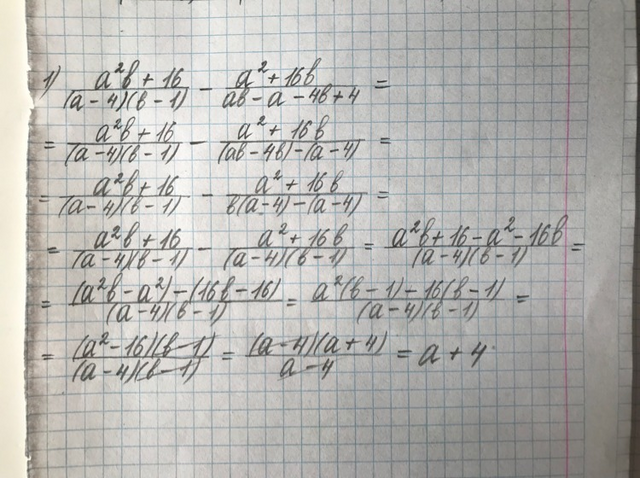 1) (a²b + 16)/((a - 4)(b - 1)) - (a² + 16b)/(ab - a - 4b + 4) =
= (a²b + 16)/((a - 4)(b - 1)) - (a² + 16b)/((ab - 4b) - (a - 4)) =
= (a²b + 16)/((a - 4)(b - 1)) - (a² + 16b)/(b(a - 4) - (a - 4)) =
= (a²b + 16)/((a - 4)(b - 1)) - (a² + 16b)/((a - 4)(b - 1)) = (a²b + 16 - a² - 16b)/((a - 4)(b - 1)) =
= ((a²b - a²) - (16b - 16))/((a - 4)(b - 1)) = (a²(b - 1) - 16(b - 1))/((a - 4)(b - 1)) =
= ((a² - 16)(b - 1))/((a - 4)(b - 1)) = ((a - 4)(a + 4))/(a - 4) = a + 4.